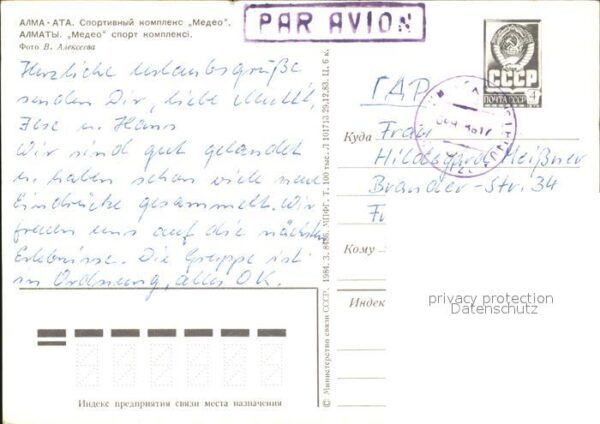 АЛМА-АТА. Спортивный комплекс „Медео".
АЛМАТЫ. „Медео" спорт комплексі.
Фото В. Алексеева
PAR AVION
СССР
ПОЧТА СССР
4
Herzliche Urlaubsgrüße
senden Dir, liebe Mutti,
Ilse u. Hans
Wir sind gut gelandet
u. haben schon viele neue
Eindrücke gesammelt. Wir
freuen uns auf die nächsten
Erlebnisse. Die Gruppe ist
in Ordnung, alles OK.
ГДР
Куда Frau
Hildegard Meißner
Brander-Str. 34
Кому
Индекс
privacy protection
Datenschutz
© Министерство связи СССР. 1984. З. 8486. МПФГ. Т. 100 тыс. Л 101713 29.12.83. Ц. 6 к.
Индекс предприятия связи места назначения